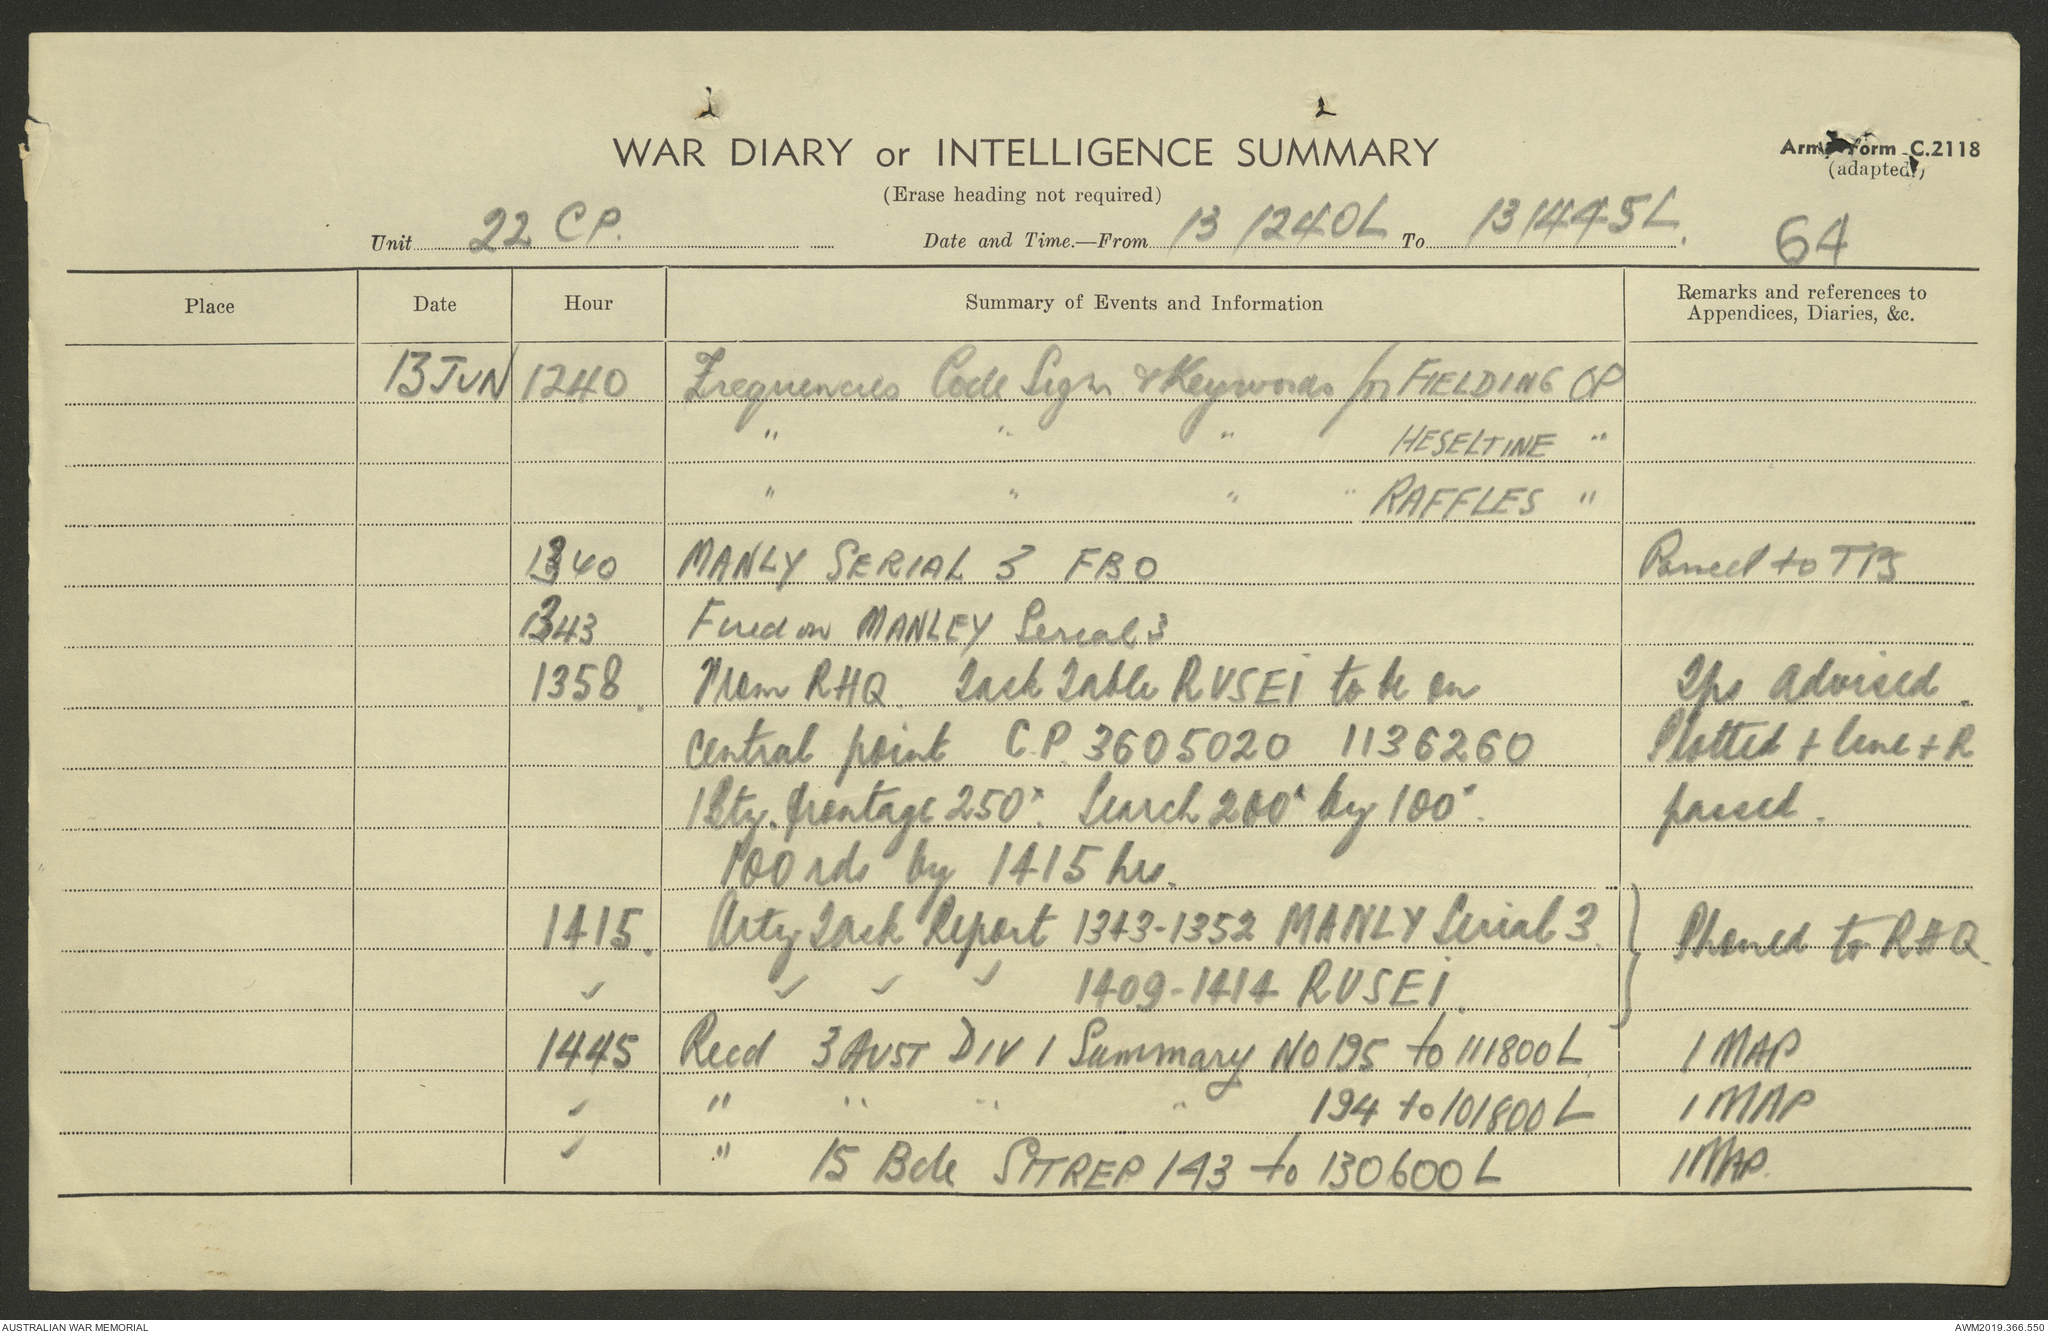 WAR DIARY or INTELLIGENCE SUMMARY
Army Form C.2118
(Erase heading not required)
(adapted)
Unit 22 C.P. Date and Time.—From 13 1240L To 131445L. 64
Place Date Hour Summary of Events and Information Remarks and references to Appendices, Diaries, &c.
13 JUN 1240 Frequencies Code Sign & Keywords for FIELDING OP
" " " HESELTINE "
" " " " RAFFLES "
1340 MANLY SERIAL 3 FBO Passed to TPS
1343 Fired on MANLEY Serial 3
1358. From RHQ Task Table RVSEI to be on Tps advised.
central point C.P. 3605020 1136260 Plotted + line + R
1 Bty. frontage 250ˣ. Search 200ˣ by 100ˣ. passed.
100 rds by 1415 hrs.
1415. Arty Task Report 1343-1352 MANLY Serial 3. } Phoned to RHQ.
" " " " 1409-1414 RVSEI.
1445 Recd 3 AUST DIV I Summary NO 195 to 111800L 1 MAP
" " " " " 194 to 101800L 1 MAP
" " 15 Bde SITREP 143 to 130600L 1 MAP.
AUSTRALIAN WAR MEMORIAL
AWM2019.366.550